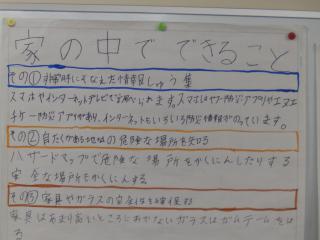 家の中でできること
その①非常時にそなえた情報しゅう集
スマホやインターネット、テレビで調べられます。スマホはヤフー防災アプリやエヌエ
チケー防災アプリがあり、インターネットもいろいろ防災情報がのっています。
その②自たくがある地域の危険な場所を知る
ハザードマップで危険な場所をかくにんしたりする
安全な場所もかくにんする
その③家具やガラスの安全性を確保する
家具はあまり高いところにおかない ガラスはガムテープをは
る